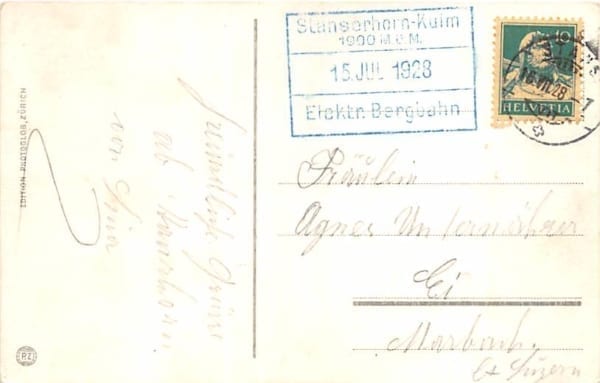 Stanserhorn-Kulm
1900 M.ü.M.
15. JUL 1928
Elektr. Bergbahn
10
HELVETIA
16.VII.28
EDITION PHOTOGLOB, ZÜRICH
Freundliche Grüsse
ab Stanserhorn
von
Fräulein
Agnes Unternährer
Ei
Marbach
Kt Luzern
PZ